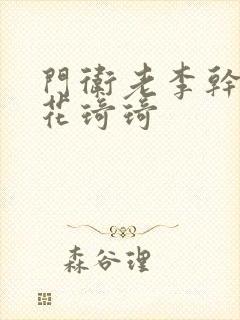 門衛老李幹
花琦琦
森谷理